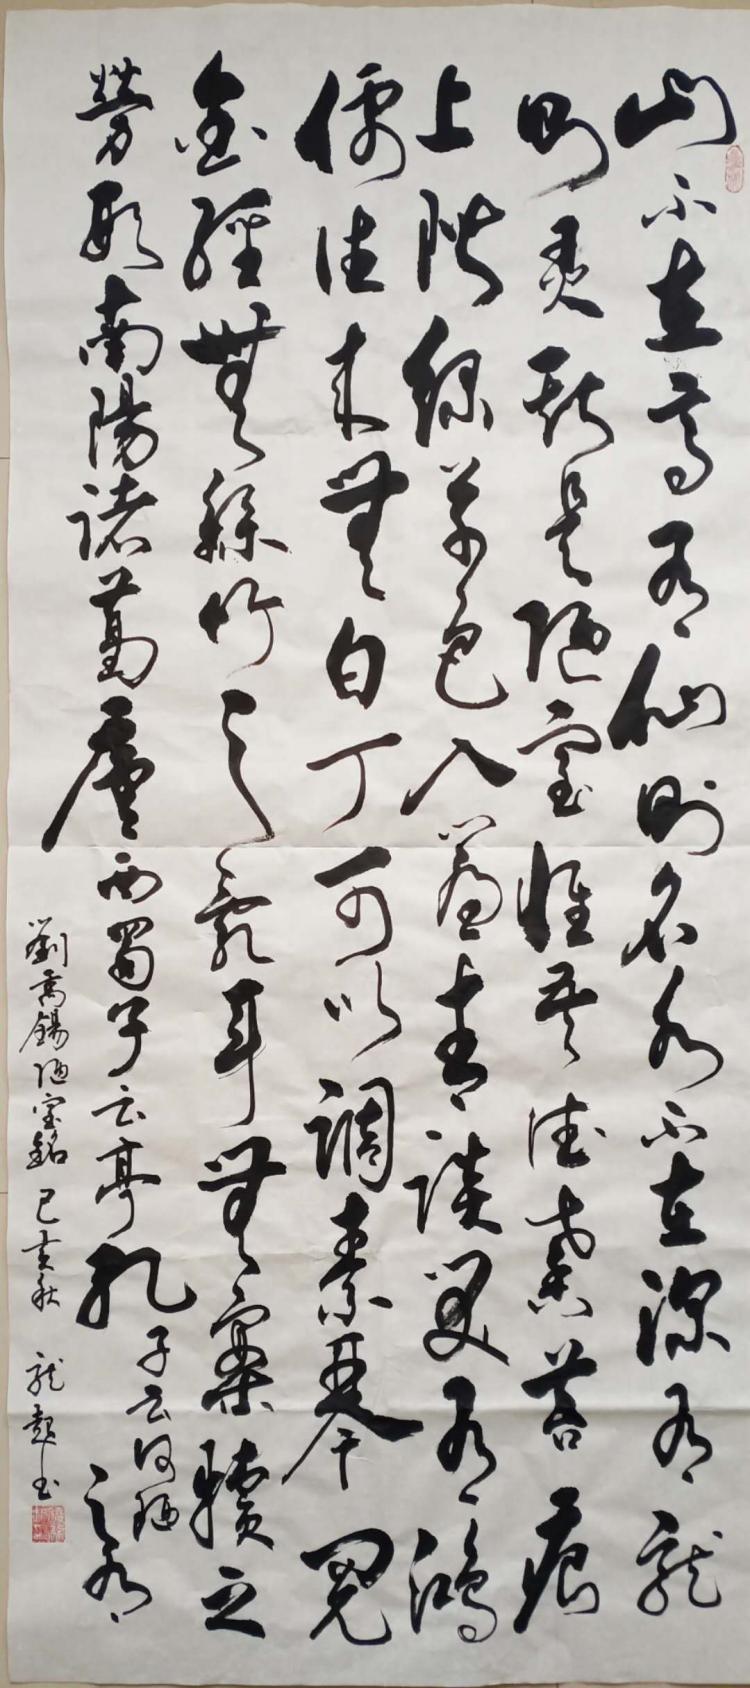 山不在高有仙則名水不在深有龍
則灵斯是陋室惟吾德馨苔痕
上階綠草色入簾青談笑有鴻
儒往来無白丁可以調素琴閱
金經無絲竹之亂耳無案牘之
勞形南陽諸葛廬西蜀子云亭孔子云何陋之有
劉禹錫陋室銘 己亥秋 龍超书